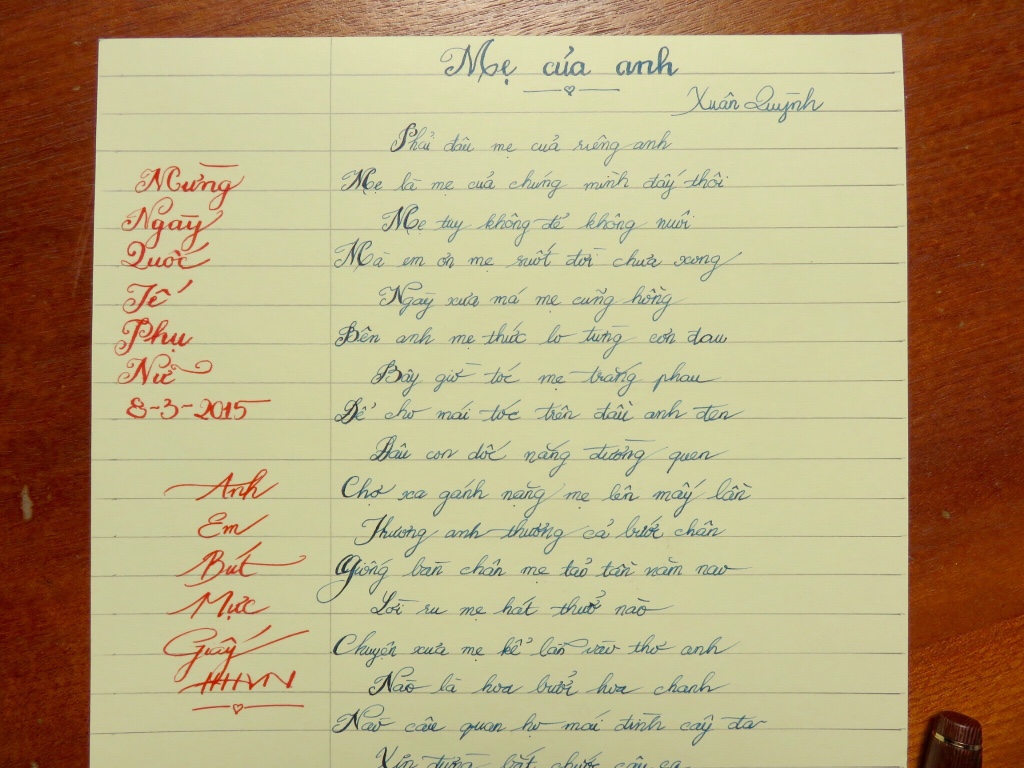 Mẹ của anh
Xuân Quỳnh
Phải đâu mẹ của riêng anh
Mẹ là mẹ của chúng mình đấy thôi
Mẹ tuy không đẻ không nuôi
Mà em ơn mẹ suốt đời chưa xong
Ngày xưa má mẹ cũng hồng
Bên anh mẹ thức lo từng cơn đau
Bây giờ tóc mẹ trắng phau
Để cho mái tóc trên đầu anh đen
Đâu con dốc nắng đường quen
Chợ xa gánh nặng mẹ lên mấy lần
Thương anh thương cả bước chân
Giống bàn chân mẹ tảo tần năm nao
Lời ru mẹ hát thuở nào
Chuyện xưa mẹ kể lẫn vào thơ anh
Nào là hoa bưởi hoa chanh
Nào câu quan họ mái đình cây đa
Xin đừng bắt chước câu ca
Mừng
Ngày
Quốc
Tế
Phụ
Nữ
8-3-2015
Anh
Em
Bút
Mực
Giấy
HHVN